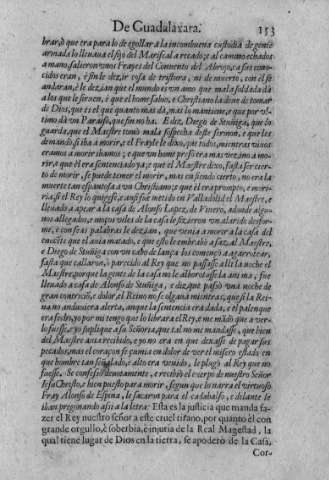 De Guadalaxara. 153
brar, ò que era para lo degollar a la incontinenti custodia de gente
armada lo lleuaua el fijo del Mariscal a recado; e al camino echados
a mano, salieron unos Frayes del Conuento del Abrojo, ca assi cono-
cidos eran, è sin le dezir cosa de tristura, ni de muerto, con el se
andaran, è le dezian que el mundo es vn amo que mala soldada dà
a los que le siruen, è que el home sabio, e Christiano la deue de tomar
de Dios, que es el que quanto mas dà, mas lo mantiene, e que por vl-
timo dà vn Paraiso, que fin no ha. E diz, Diego de Stuñiga, que lo
guarda, que el Maestre tomò mala sospecha deste sermon, e que les
demandò si iba a morir, e el Frayle le dixo, que todos, mientras viuos
eramos a morir ibamos; e que vn home preso era mas vezino a mo-
rir, e que èl era sentenciado ya; e que el Maestre dixo, fasta ser cier-
to de morir, se puede temer el morir, mas en siendo cierto, no era la
muerte tan espantosa a vn Christiano; e que èl era prompto, e mori-
ria, si el Rey lo quiesse, e ansi fue metido en Valladolid el Maestre, e
lleuado a apear a la casa de Alonso Lopez, de Viuero, adonde algu-
nos allegados, e moços viles de la casa le fizieron vn alarido desfor-
me, e con feas palabras le dezian, que venia a morir a la casa del
que el auia matado, e que esto le embraciò a faz, al Maestre,
e Diego de Stuñiga con vn cabo de lança los començò a garrotear,
fasta que callaron, è parecido al Rey que no passasse alli la noche el
Maestre, porque la gente de la casa no le alborotasse la anima; fue
lleuado a casa de Alonso de Stuñiga, e diz, que passò vna noche de
gran contricio, e dolor, el Retino no se olgaua mientras, e que si la Rei-
na no anduuiera alerta, aunque la sentencia era dada, e el palenque
era fecho, porvno tengo que lo librara el Rey, e me mãdò que a ver-
lo fuesse, e yo suplique a su Señoria, que tal no me mandasse, que bien
del Maestre auia recibido, e yo no era en que denasse de pagar sus
pecados, mas el coraçon se partia en dolor de ver el misero estado en
que hombre tan señalado, e alto era venido, le plugò al Rey que no
fuesse. Se confessò deuotamente, e recibiò el cuerpo de nuestro Señor
IesuChristo, e bien puesto para morir, segun que lo narra el virtuoso
Fray Alonso de Espina, le sacaron para el cadahalso, e delante le
iban pregonando assi a la letra: Esta es la justicia que manda fa-
zer el Rey nuestro señor a este cruel tirano, por quanto èl con
grande orgullo, è soberbia, è injuria de la Real Magestad, la
qual tiene lugar de Dios en la tierra, se apoderò de la Casa,
Cor-